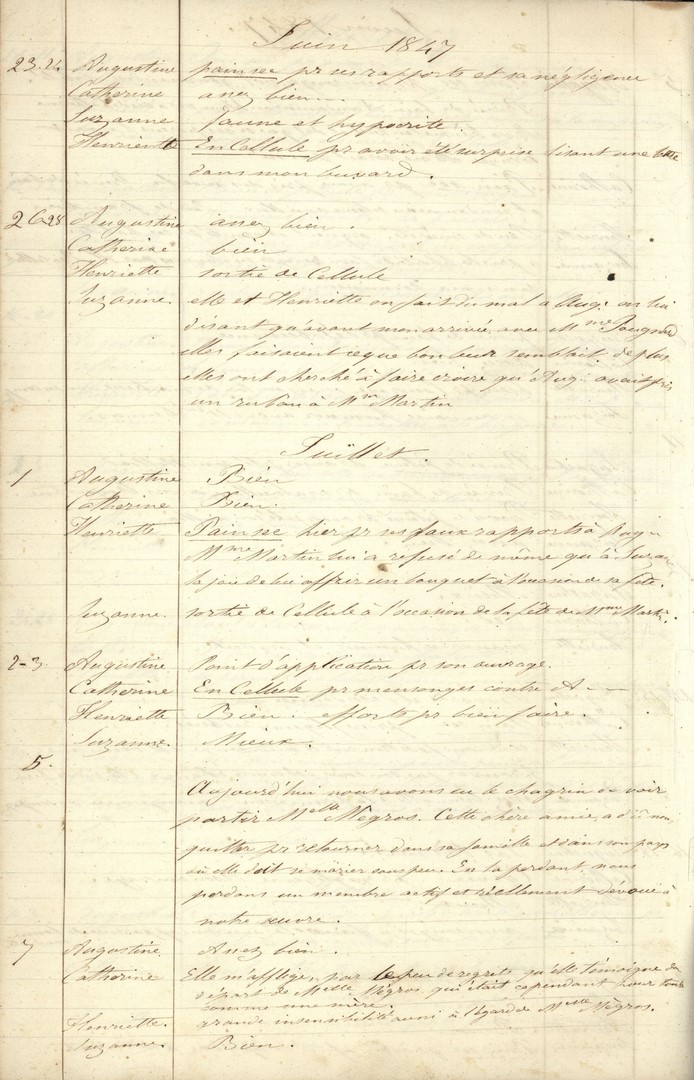 Juin 1847
23.24 Augustine pain sec pr ses rapports et sa négligence
Catherine assez bien
Suzanne fausse et hypocrite.
Henriette En Cellule pr avoir été surprise lisant une lettre
dans mon buvard.
26.28 Augustine assez bien.
Catherine bien
Henriette sortie de Cellule
Suzanne. elle et Henriette on fait du mal a Aug: en lui
disant qu'avant mon arrivée, avec Mme
elles faisaient ce que bon leur semblait. de plus
elles ont cherché à faire croire qu'Aug. avait pris
un ruban à Mme Martin
Juillet.
1 Augustine Bien
Catherine Bien.
Henriette Pain sec hier pr ses faux rapports à Aug-
Mme Martin lui a refusé de même qu'à Suzan
la joie de lui offrir un bouquet à l'occasion de sa fête.
Suzanne. sortie de Cellule à l'occasion de la fête de Mme Martin.
2-3. Augustine Point d'application pr son ouvrage.
Catherine En Cellule pr mensonges contre A---
Henriette Bien. efforts pr bien faire.
Suzanne. Mieux.
5.
Aujourd'hui nous avons eu le chagrin de voir
partir Melle Négros. Cette chère amie, a dû nous
quitter pr retourner dans sa famille et dans son pays
où elle doit se marier sous peu. En la perdant nous
perdons un membre actif et réellement dévoué à
notre œuvre.
7 Augustine Assez bien.
Catherine Elle m'afflige, par le peu de regrets qu'elle témoigne du
départ de Melle Négros, qui était cependant pour toutes
comme une mère.
Henriette. grande insensibilité aussi à l'égard de Melle Négros.
Suzanne. Bien.